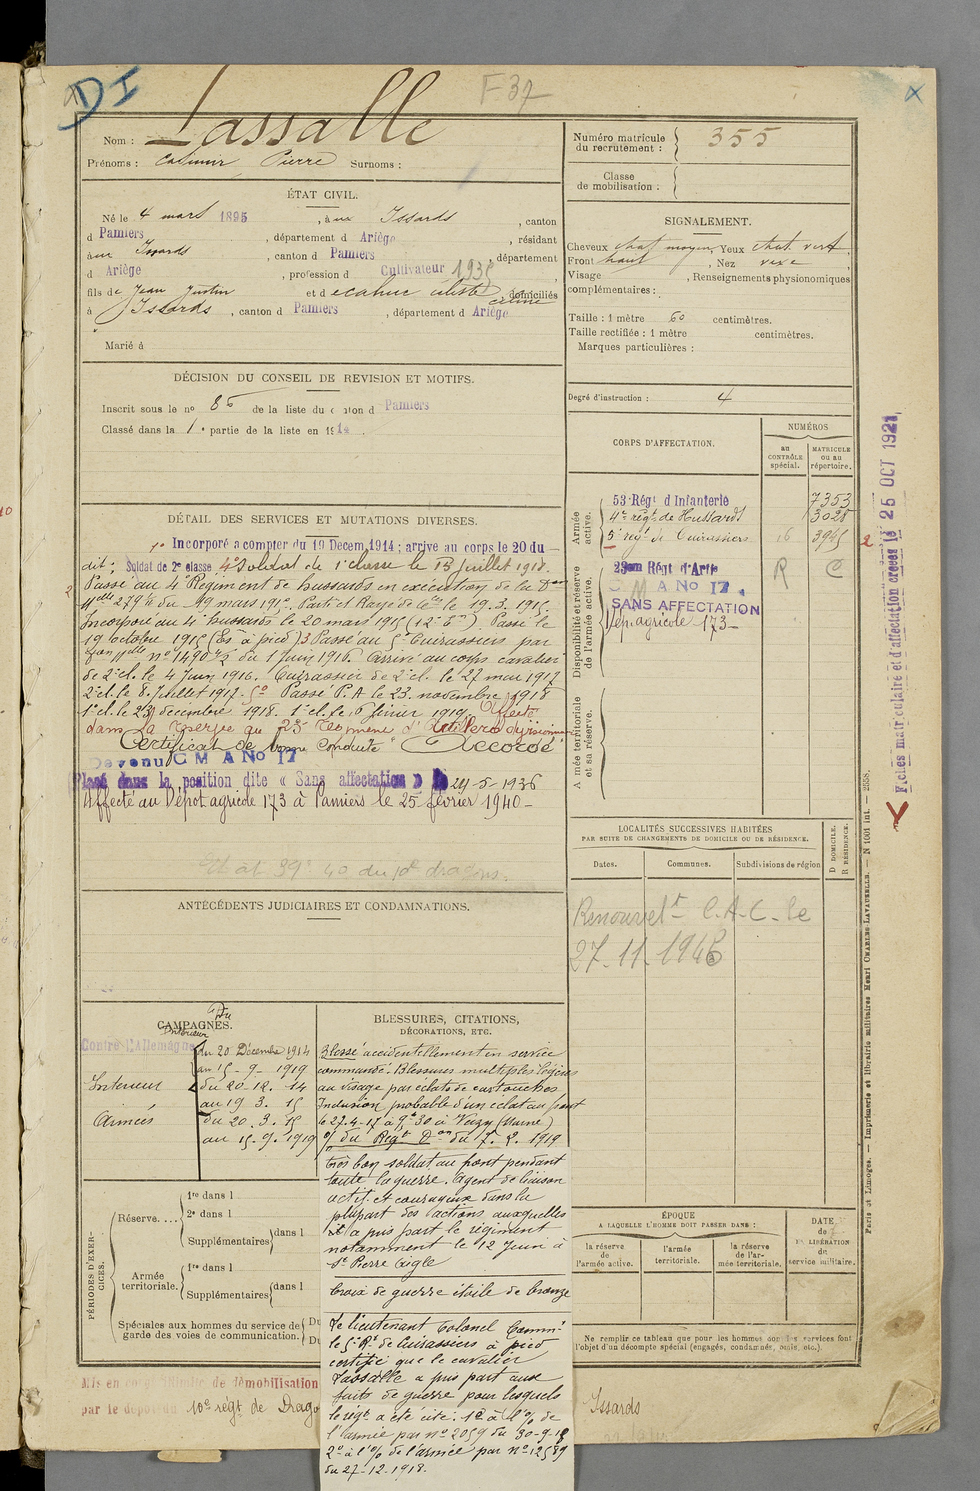 DI
F 37
Nom : Lassalle
Prénoms : Casimir Pierre Surnoms :
ÉTAT CIVIL.
Né le 4 mars 1895, à aux Issards, canton
d Pamiers, département d Ariège, résidant
à aux Issards, canton d Pamiers, département
d Ariège, profession d Cultivateur
fils de Jean Justin et d domiciliés
à Issards, canton d Pamiers, département d Ariège
Marié à
DÉCISION DU CONSEIL DE REVISION ET MOTIFS.
Inscrit sous le no 86 de la liste du canton d Pamiers
Classé dans la 1e partie de la liste en 1914.
DÉTAIL DES SERVICES ET MUTATIONS DIVERSES.
1° Incorporé a compter du 19 Decem. 1914 ; arrive au corps le 20 du
dit ; Soldat de 2e classe Soldat de 1e classe le 13 juillet 1915.
Passé au 4e Régiment de hussards en exécution de la Don
Mlle 279 du 19 mars 1915. Parti et Rayé des cles le 19.3.1915.
Incorporé au 4e hussards le 20 mars 1915 (12e Eon). Passé le
19 octobre 1915 (Es à pied) 3 Passé au 5e Cuirassiers par
no 1490 du 1 juin 1916. Arrivé au corps cavalier
de 2e cl. le 4 juin 1916. Cuirassier de 1e cl. le 27 mai 1917
2e cl. le 8 juillet 1917. 5° Passé P. A le 23 novembre 1918
1e cl. le 23 décembre 1918. 1e cl. le 6 février 1919. Affecté
dans la Réserve au 23e Régiment d'Artillerie divisionnaire
Certificat de bonne conduite "Accordé"
Devenu C M A No 17
Placé dans la position dite « Sans affectation » le 24-5-1936
Affecté au Dépot agricole 173 à Pamiers le 25 février 1940-
ANTÉCÉDENTS JUDICIAIRES ET CONDAMNATIONS.
CAMPAGNES.
Contre l'Allemagne
Intérieur
du 20 Décembre 1914
au 15-9-1919
Intérieur du 20.12.14
au 19.3.15
Armées du 20.3.15
au 15.9.1919
BLESSURES, CITATIONS,
DÉCORATIONS, ETC.
Blessé accidentellement en service
commandé. Blessures multiples légères
au visage par éclats de cartouches
Inclusion probable d'un éclat au front
le 27-4-17 à 9h30 à Verzy (Marne)
o/ du Régt Don du 7.2.1919
très bon soldat au front pendant
toute la guerre. Agent de liaison
actif et courageux dans la
plupart des actions auxquelles
il a pris part le régiment
notamment le 12 Juin à
St Pierre Aigle
Croix de guerre étoile de bronze
Le lieutenant Colonel Commt
le 5e Rt de Cuirassiers à pied
certifie que le cavalier
Lassalle a pris part aux
faits de guerre pour lesquels
le régt a été cité. 1° à l'o/o de
l'armée par no 2059 du 30-9-18
2° à l'o/o de l'armée par no 12589
du 27-12-1918.
PÉRIODES D'EXERCICES.
Réserve....
1re dans l
2e dans l
Supplémentaires dans l
Armée territoriale.
1re dans l
Supplémentaires dans l
Spéciales aux hommes du service de
garde des voies de communication.
Du
Du
Mis en congé illimité de démobilisation
par le dépot du 10e régt de Drago
Issards
Numéro matricule
du recrutement : 355
Classe
de mobilisation :
SIGNALEMENT.
Cheveux chat. moyen, Yeux chat. vert,
Front haut, Nez vexe,
Visage , Renseignements physionomiques
complémentaires :
Taille : 1 mètre 60 centimètres.
Taille rectifiée : 1 mètre centimètres.
Marques particulières :
Degré d'instruction : 4
CORPS D'AFFECTATION.
NUMÉROS
au CONTRÔLE spécial.
MATRICULE ou au répertoire.
Armée active.
53e Régt d'Infanterie 7353
4e régt de Hussards 3028
5e régt de Cuirassiers 16 3945
Disponibilité et réserve de l'armée active.
23em Régt d'Artie R C
C M A No 17
SANS AFFECTATION
Dép. agricole 173-
Armée territoriale et sa réserve.
LOCALITÉS SUCCESSIVES HABITÉES
PAR SUITE DE CHANGEMENTS DE DOMICILE OU DE RÉSIDENCE.
Dates.
Communes.
Subdivisions de région.
D DOMICILE.
R RÉSIDENCE.
Renouvelt C.A.C. le
27.11.1946
ÉPOQUE
A LAQUELLE L'HOMME DOIT PASSER DANS :
la réserve de l'armée active.
l'armée territoriale.
la réserve de l'armée territoriale.
DATE de la LIBÉRATION du service militaire.
Ne remplir ce tableau que pour les hommes dont les services font
l'objet d'un décompte spécial (engagés, condamnés, omis, etc.).
Fiches matriculaire et d'affectation créées le 26 OCT 1921
Paris et Limoges. — Imprimerie et librairie militaires Henri CHARLES-LAVAUZELLE. — N 1001 int. — 2858.